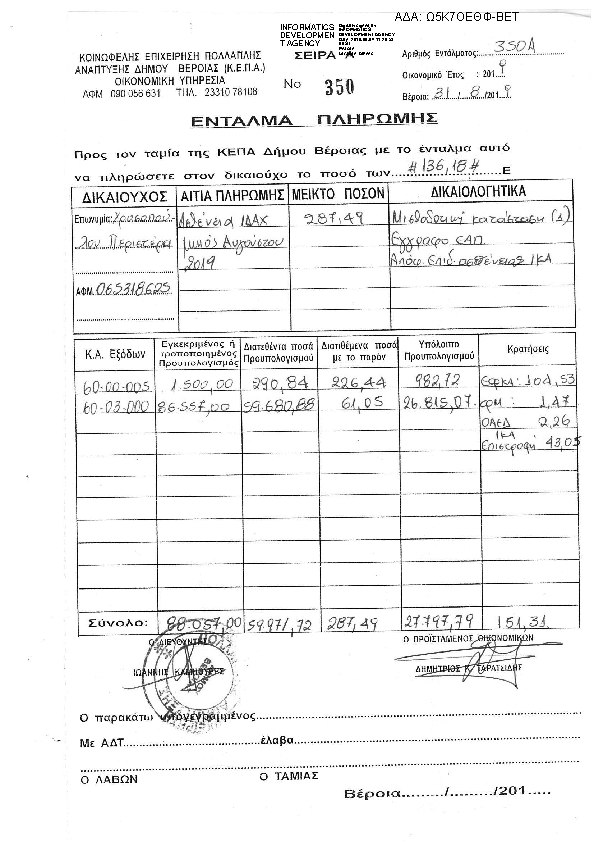 ΑΔΑ: Ω5Κ7ΟΕΘΦ-ΒΕΤ
INFORMATICS DEVELOPMENT AGENCY
ΚΟΙΝΩΦΕΛΗΣ ΕΠΙΧΕΙΡΗΣΗ ΠΟΛΛΑΠΛΗΣ
ΑΝΑΠΤΥΞΗΣ ΔΗΜΟΥ ΒΕΡΟΙΑΣ (Κ.Ε.Π.Α.)
ΟΙΚΟΝΟΜΙΚΗ ΥΠΗΡΕΣΙΑ
ΑΦΜ 090 056 631 ΤΗΛ. 23310 78108
ΣΕΙΡΑ Α
Νο 350
Αριθμός Εντάλματος: 350Α
Οικονομικό Έτος : 2019
Βέροια: 31.8./2019
ΕΝΤΑΛΜΑ ΠΛΗΡΩΜΗΣ
Προς τον ταμία της ΚΕΠΑ Δήμου Βέροιας με το ένταλμα αυτό
να πληρώσετε στον δικαιούχο το ποσό των #136,18# Ε
ΔΙΚΑΙΟΥΧΟΣ ΑΙΤΙΑ ΠΛΗΡΩΜΗΣ ΜΕΙΚΤΟ ΠΟΣΟΝ ΔΙΚΑΙΟΛΟΓΗΤΙΚΑ
Επωνυμία: Ασθένεια ΙΔΑΧ 287,49 Μισθοδοτική κατάσταση (Δ)
Περιστέρα μηνός Αυγούστου Έγγραφο
2019 ΙΚΑ
ΑΦΜ. 065318625
Κ.Α. Εξόδων Εγκεκριμένος ή τροποποιημένος Προυπολογισμός Διατεθέντα ποσά Προυπολογισμού Διατιθέμενα ποσά με το παρόν Υπόλοιπο Προυπολογισμού Κρατήσεις
60-00-005 1.500,00 290,84 226,44 982,72 ΕΦΚΑ: 104,53
60-03-000 86.557,00 59.680,88 61,05 26.815,07 1,47
ΟΑΕΔ 2,26
ΙΚΑ
Επιστροφή 43,05
Σύνολο: 88.057,00 59.971,72 287,49 27.797,79 151,31
Ο ΔΙΕΥΘΥΝΤΗΣ Ο ΠΡΟΪΣΤΑΜΕΝΟΣ ΟΙΚΟΝΟΜΙΚΩΝ
ΙΩΑΝΝΗΣ ΔΗΜΗΤΡΙΟΣ ΤΑΡΑΤΣΙΔΗΣ
Ο παρακάτω υπογεγραμμένος
Με ΑΔΤ έλαβα
Ο ΛΑΒΩΝ Ο ΤΑΜΙΑΣ
Βέροια......../......../201.....